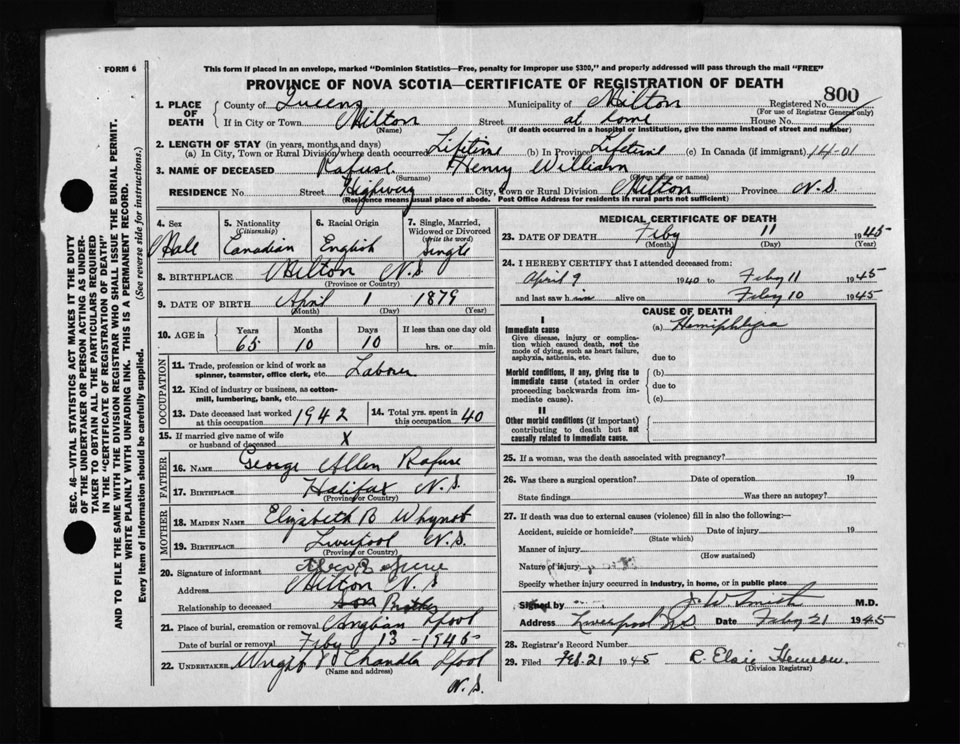 FORM 6
This form if placed in an envelope, marked "Dominion Statistics—Free, penalty for improper use $300," and properly addressed will pass through the mail "FREE"
PROVINCE OF NOVA SCOTIA—CERTIFICATE OF REGISTRATION OF DEATH
SEC. 46—VITAL STATISTICS ACT MAKES IT THE DUTY
OF THE UNDERTAKER OR PERSON ACTING AS UNDER-
TAKER TO OBTAIN ALL THE PARTICULARS REQUIRED
IN THE "CERTIFICATE OF REGISTRATION OF DEATH"
AND TO FILE THE SAME WITH THE DIVISION REGISTRAR WHO SHALL ISSUE THE BURIAL PERMIT.
WRITE PLAINLY WITH UNFADING INK. THIS IS A PERMANENT RECORD.
Every item of Information should be carefully supplied. (See reverse side for instructions.)
1. PLACE OF DEATH County of Queens Municipality of Milton Registered No. 800
(For use of Registrar General only)
If in City or Town Milton Street at home House No.
(Name) (If death occurred in a hospital or institution, give the name instead of street and number)
2. LENGTH OF STAY (in years, months and days)
(a) In City, Town or Rural Division where death occurred Lifetime (b) In Province Lifetime (c) In Canada (if immigrant) 14-01
3. NAME OF DECEASED Rafuse Henry William
(Surname) (Given name or names)
RESIDENCE No. Street Highway City, Town or Rural Division Milton Province N.S.
(Residence means usual place of abode. Post Office Address for residents in rural parts not sufficient)
4. Sex 5. Nationality (Citizenship) 6. Racial Origin 7. Single, Married, Widowed or Divorced (write the word)
Male Canadian English Single
8. BIRTHPLACE Milton N.S.
(Province or Country)
9. DATE OF BIRTH April 1 1879
(Month) (Day) (Year)
10. AGE in Years Months Days If less than one day old
65 10 10 hrs. or min.
OCCUPATION
11. Trade, profession or kind of work as spinner, teamster, office clerk, etc. Labourer
12. Kind of industry or business, as cotton-mill, lumbering, bank, etc.
13. Date deceased last worked at this occupation 1942 14. Total yrs. spent in this occupation 40
15. If married give name of wife or husband of deceased X
FATHER
16. NAME George Allen Rafuse
17. BIRTHPLACE Halifax N.S.
(Province or Country)
MOTHER
18. MAIDEN NAME Elizabeth B Whynot
19. BIRTHPLACE Liverpool N.S.
(Province or Country)
20. Signature of informant
Address Milton N.S
Relationship to deceased Son Brother
21. Place of burial, cremation or removal Lpool
Date of burial or removal Feby 13 - 1945
22. UNDERTAKER Wright & Chandler Lpool
(Name and address)
N.S.
MEDICAL CERTIFICATE OF DEATH
23. DATE OF DEATH Feby 11 1945
(Month) (Day) (Year)
24. I HEREBY CERTIFY that I attended deceased from:
April 9 1940 to Feby 11 1945
and last saw him alive on Feby 10 1945
CAUSE OF DEATH
I
Immediate cause (a) Hemiphlegia
Give disease, injury or complication which caused death, not the mode of dying, such as heart failure, asphyxia, asthenia, etc.
due to
Morbid conditions, if any, giving rise to immediate cause (stated in order proceeding backwards from immediate cause).
(b)
due to
(c)
II
Other morbid conditions (if important) contributing to death but not causally related to immediate cause.
25. If a woman, was the death associated with pregnancy?
26. Was there a surgical operation? Date of operation 19
State findings Was there an autopsy?
27. If death was due to external causes (violence) fill in also the following:—
Accident, suicide or homicide? Date of injury 19
(State which)
Manner of injury
(How sustained)
Nature of injury
Specify whether injury occurred in industry, in home, or in public place
Signed by J W Smith M.D.
Address Liverpool N.S Date Feby 21 1945
28. Registrar's Record Number
29. Filed Feb. 21 1945 R. Elsie
(Division Registrar)